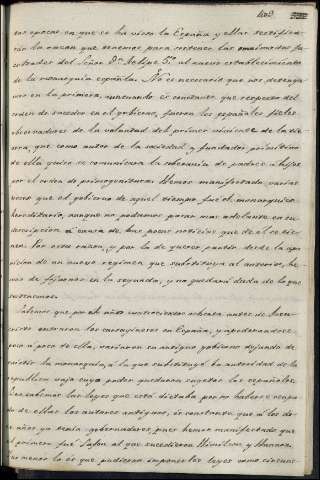 409
ras epocas en que se ha visto la España y ellas rectifica-
rán la razon que tenemos para sostener las
del Señor Dn. Felipe 5.º al nuevo establecimiento
de la monarquia española. No es necesario que nos detenga-
mos en la primera, quando es constante que respecto del
orden de suceder en el gobierno, fueron los españoles fieles
observadores de la voluntad del primer viviente de la tie-
rra, que como autor de la sociedad y fundador primitivo
de ella quiso se comunicara la soberania de padres a hijos
por el orden de primogenitura. Hemos manifestado varias
veces que el gobierno de aquel tiempo fue el monarquico
hereditario, aunque no podemos pasar mas adelante en su
descripcion á causa de las pocas noticias que de él se tie-
nen. Por esta razon, y por la de querer partir desde la apa-
ricion de un nuevo regimen que substituya al anterior, he-
mos de fijarnos en la segunda, y no quedará duda de lo que
sustentamos.
Sabemos que por el año antes de Jesu-
cristo entraron los cartagineses en España, y apoderandose
poco a poco de ella, variaron su antiguo gobierno dejando de
existir la monarquia, á la que substituyó la autoridad de la
republica bajo cuyo poder quedaron sugetos los españoles.
las leyes que esta dictaba por no haberse ocupa-
do de ellas los autores antiguos, es constante que á los do-
ce años ya tenia gobernadores, pues hemos manifestado que
el primero fue Safon al que sucedieron Himilcon y Hannon.
No menor lo es que pudieron imponer las leyes como circuns-